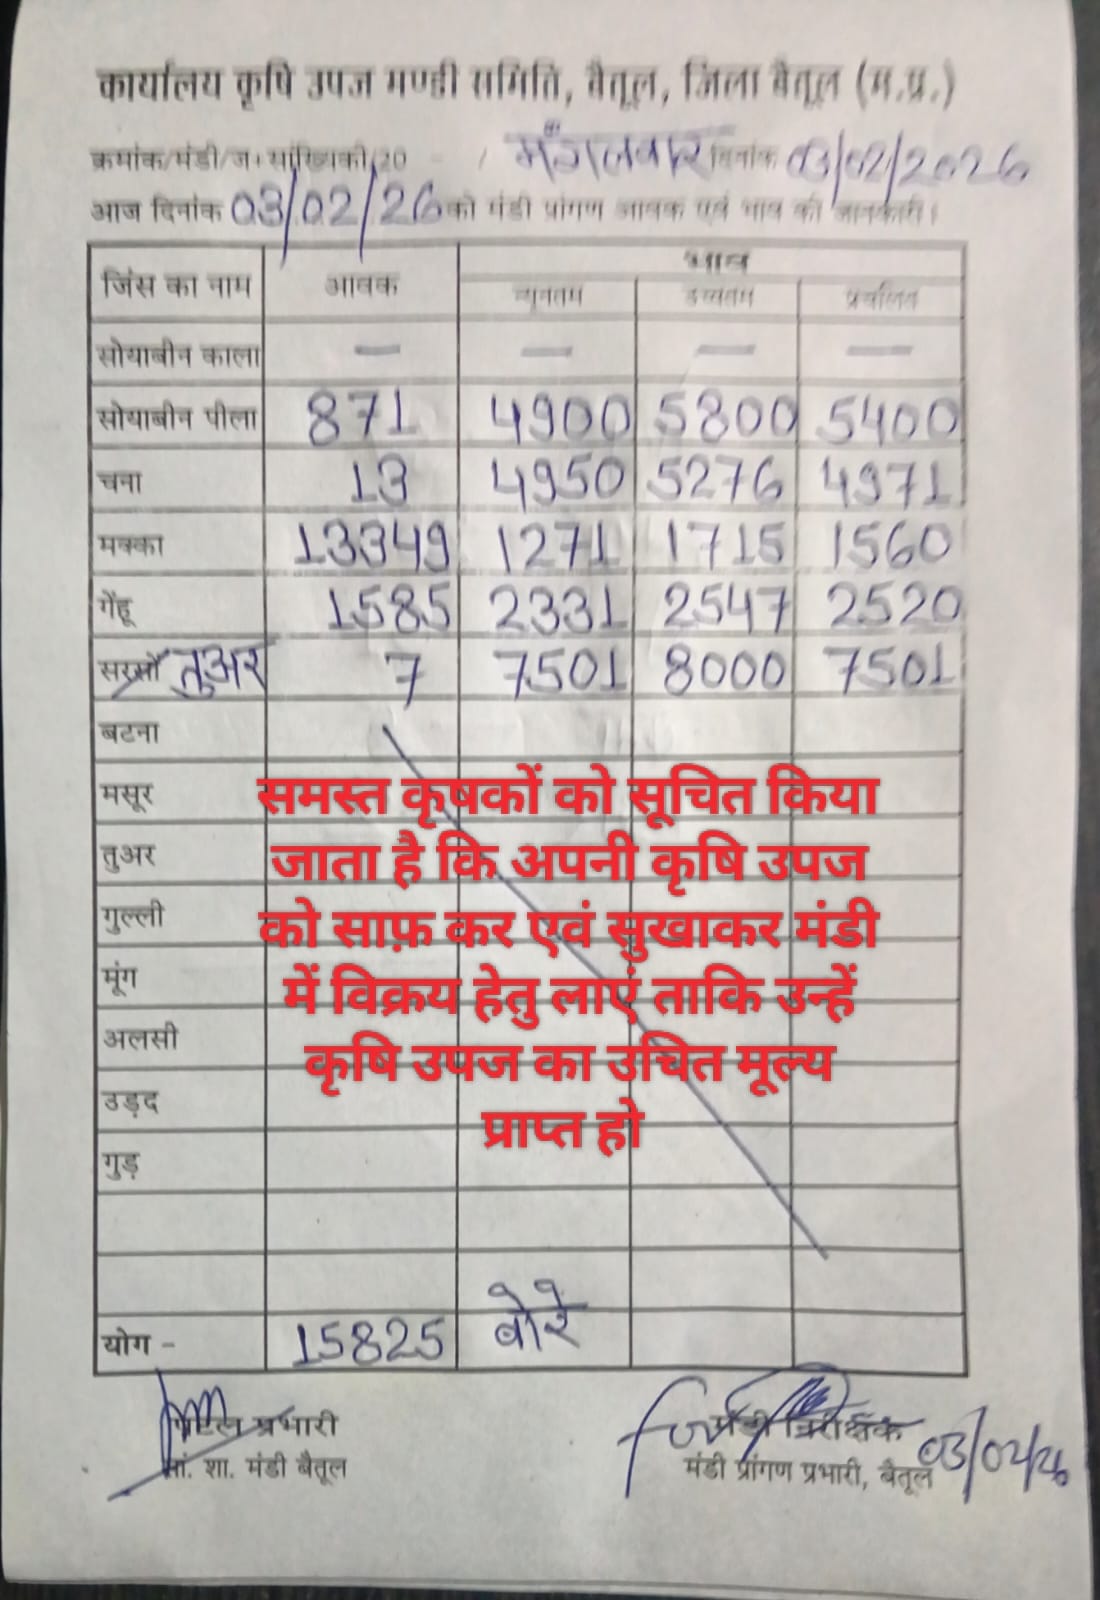 कार्यालय कृषि उपज मण्डी समिति, बैतूल, जिला बैतूल (म.प्र.)
क्रमांक/मंडी/ज.सांख्यिकी/20 - / मंगलवार दिनांक 03/02/2026
आज दिनांक 03/02/26 को मंडी प्रांगण आवक एवं भाव की जानकारी।
जिंस का नाम आवक भाव
न्यूनतम उच्चतम प्रचलित
सोयाबीन काला — — — —
सोयाबीन पीला 871 4900 5800 5400
चना 13 4950 5276 4971
मक्का 13349 1271 1715 1560
गेंहू 1585 2331 2547 2520
सरसों तुअर 7 7501 8000 7501
बटना
मसूर
तुअर
गुल्ली
मूंग
अलसी
उड़द
गुड़
समस्त कृषकों को सूचित किया
जाता है कि अपनी कृषि उपज
को साफ़ कर एवं सुखाकर मंडी
में विक्रय हेतु लाएं ताकि उन्हें
कृषि उपज का उचित मूल्य
प्राप्त हो
योग - 15825 बोरे
प्रभारी मंडी निरीक्षक 03/02/26
शा. मंडी बैतूल मंडी प्रांगण प्रभारी, बैतूल